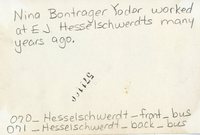 Nina Bontrager Yoder worked
at E J Hesselschwerdts many
years ago.
070_Hesselschwerdt_front_bus
071_Hesselschwerdt_back_bus